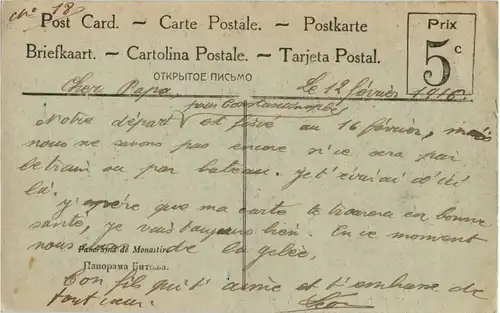 No 18
Post Card. – Carte Postale. – Postkarte
Briefkaart. – Cartolina Postale. – Tarjeta Postal.
ОТКРЫТОЕ ПИСЬМО
Prix
5 c
Cher Papa, Le 12 février 1916.
pour Constantinople
Notre départ est fixé au 16 février, mais
nous ne savons pas encore si ce sera par
le train ou par bateau. Je t'écrirai d'ici
là.
J'espère que ma carte te trouvera en bonne
santé, je vais toujours bien. En ce moment
nous de la gelée.
Panorama de Monastir
Панорама Битоља.
Ton fils qui t'aime et t'embrasse de
tout cœur.
Léon